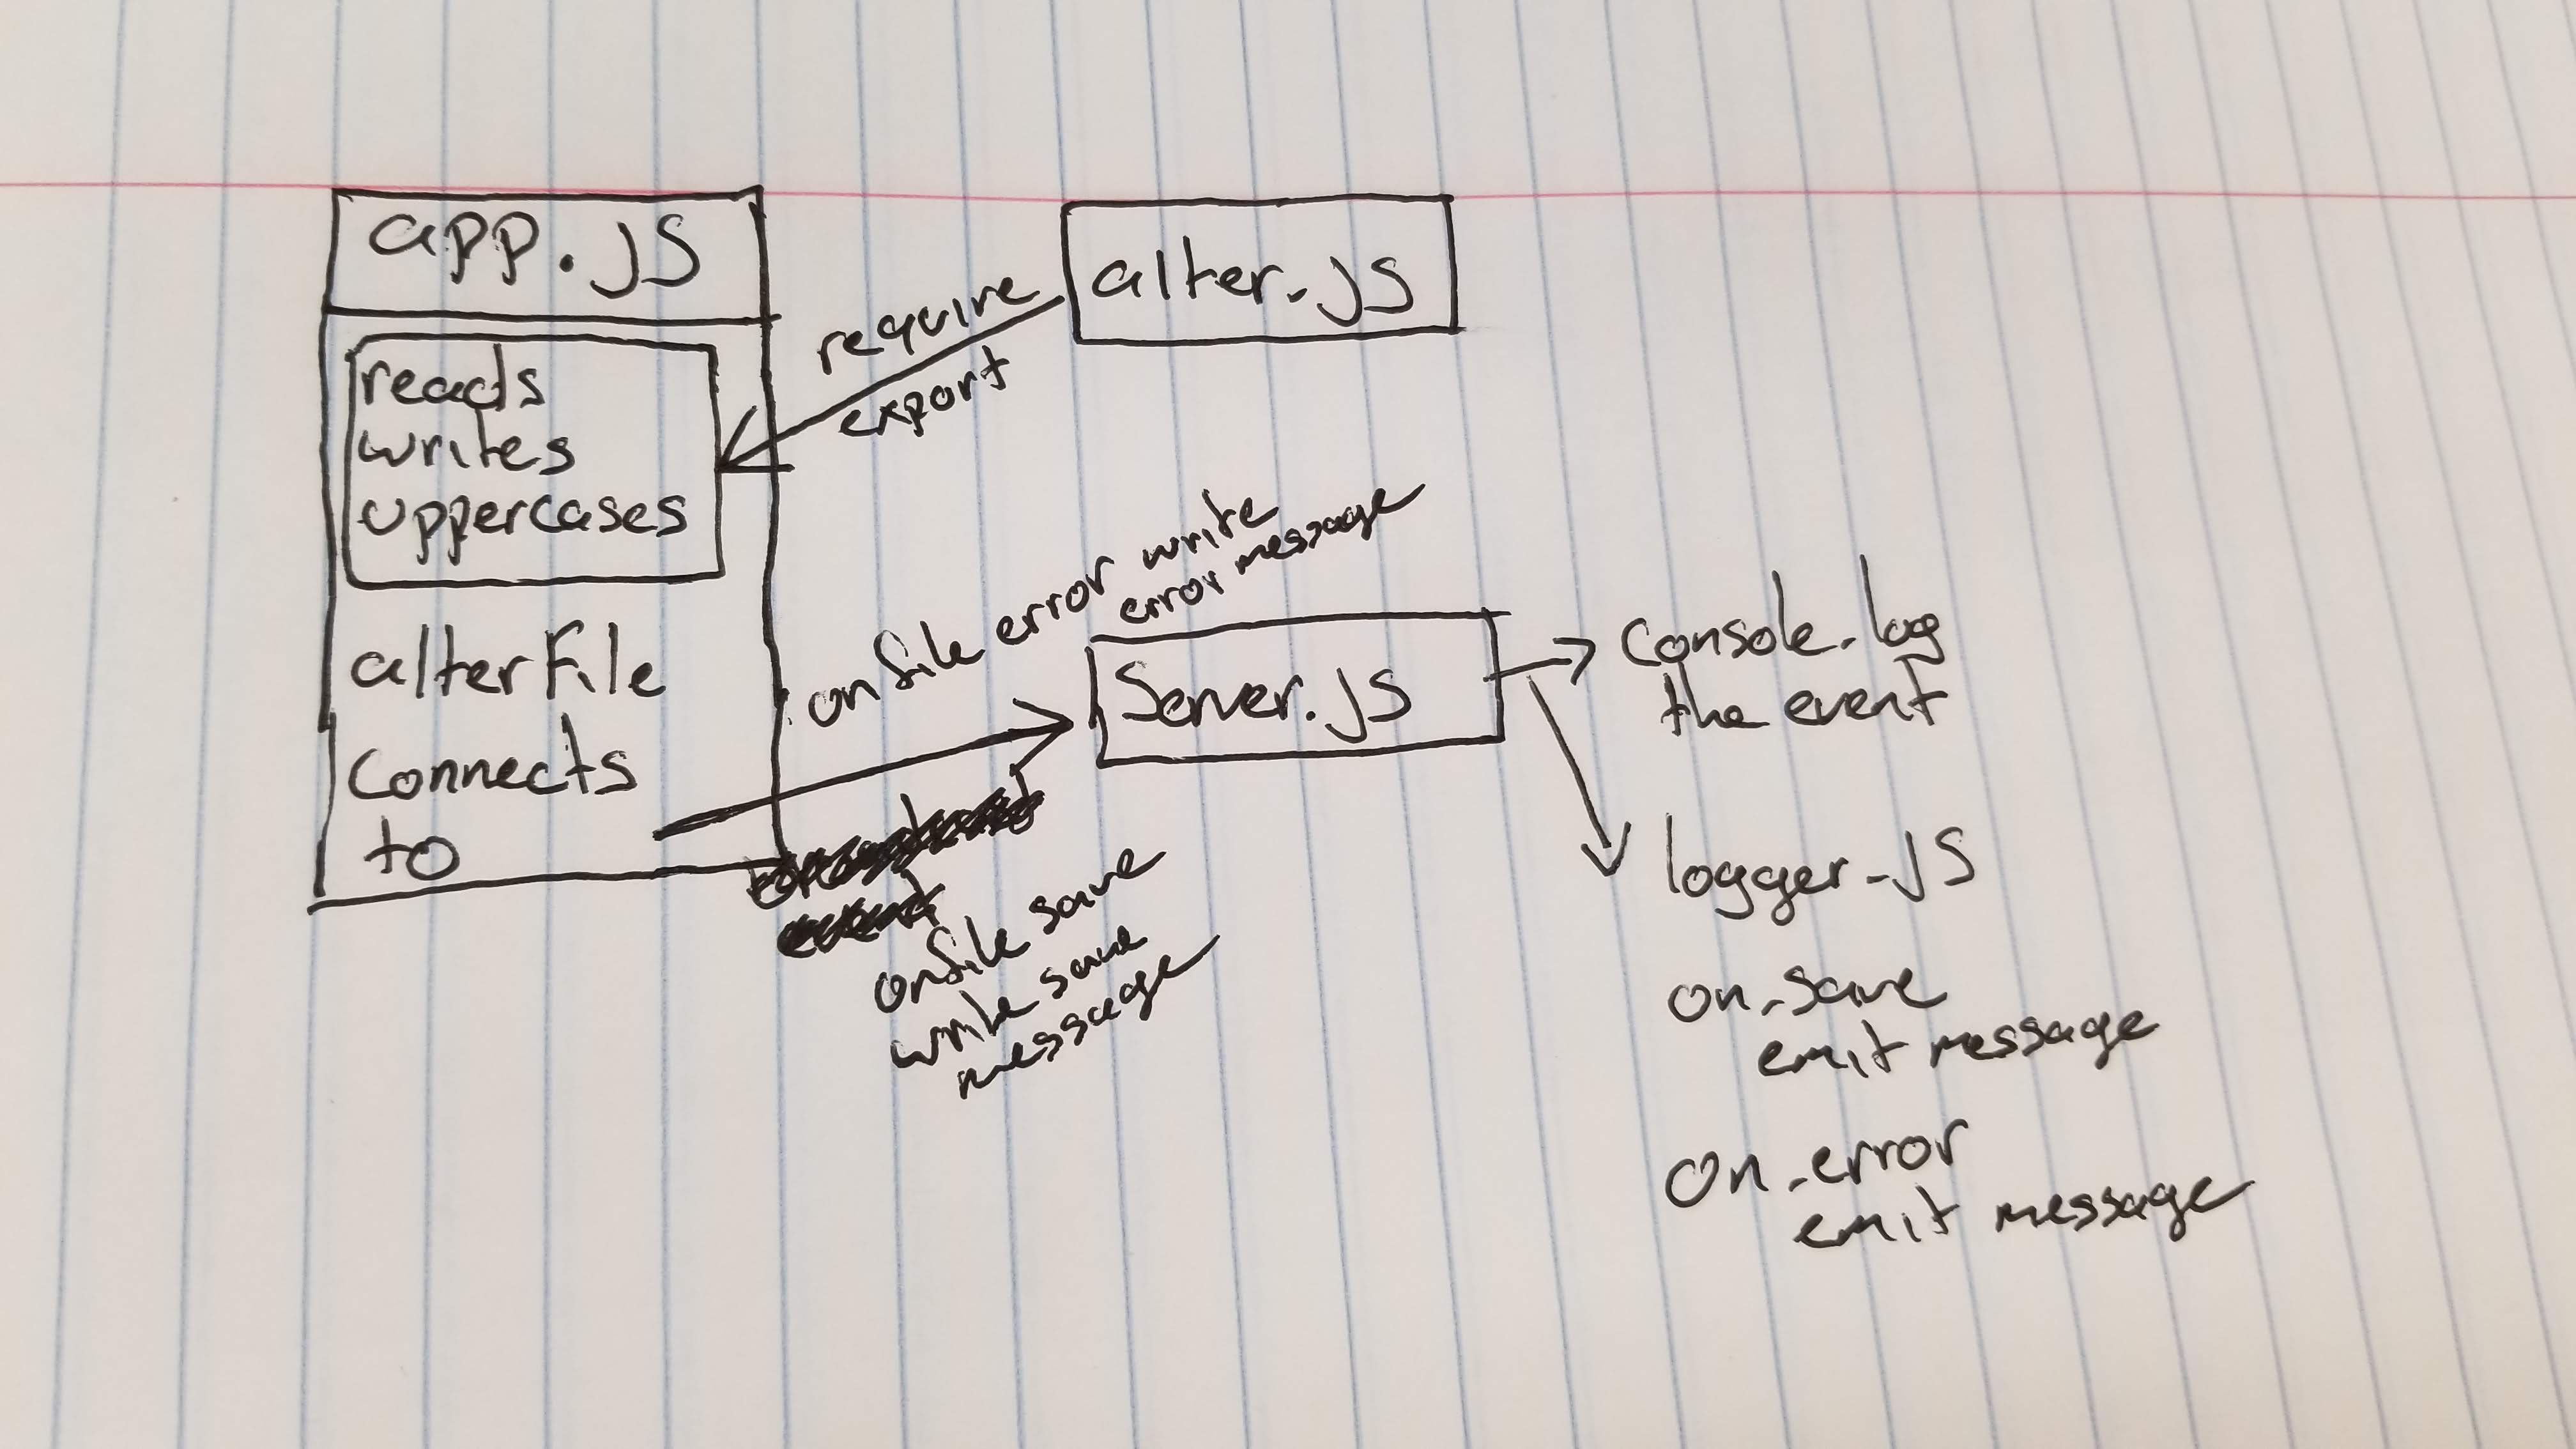 app.js
reads
writes
uppercases
alterFile
connects
to
alter.js
require
export
on file error write
error message
Server.js
on file save
write save
message
console.log
the event
logger.js
on-save
emit message
on-error
emit message